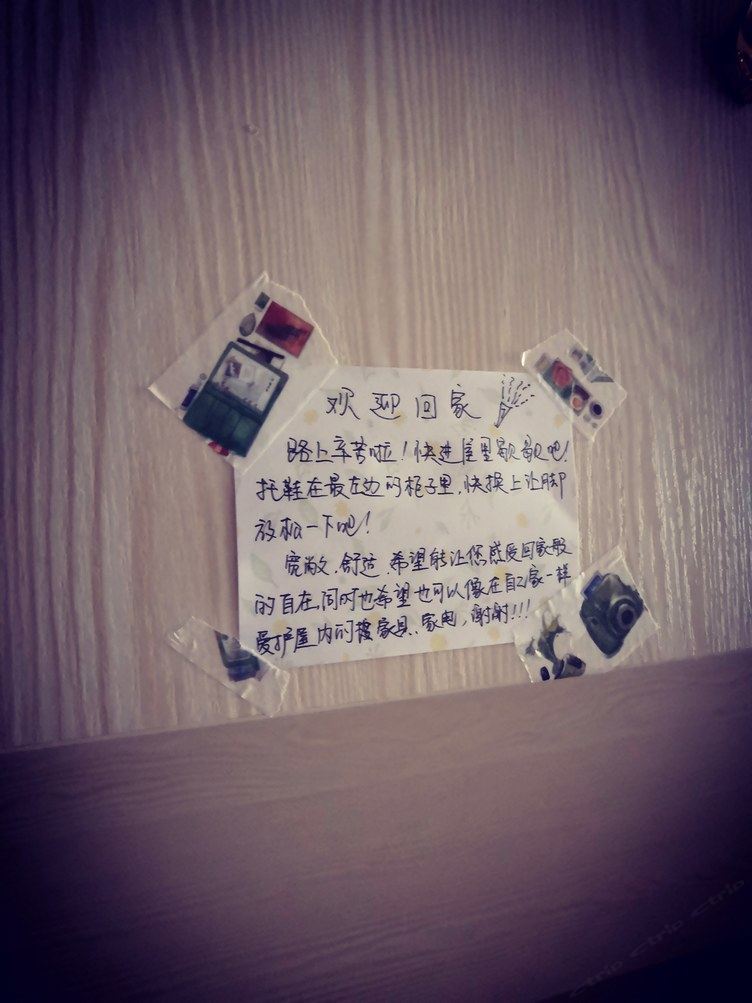 欢迎回家
路上辛苦啦！快进屋里歇歇吧！
托鞋在最左边的柜子里，快换上让脚
放松一下吧！
宽敞、舒适、希望能让您感受回家般
的自在，同时也希望也可以像在自己家一样
爱护屋内的家具、家电，谢谢！！！
ctrip ctrip ctrip